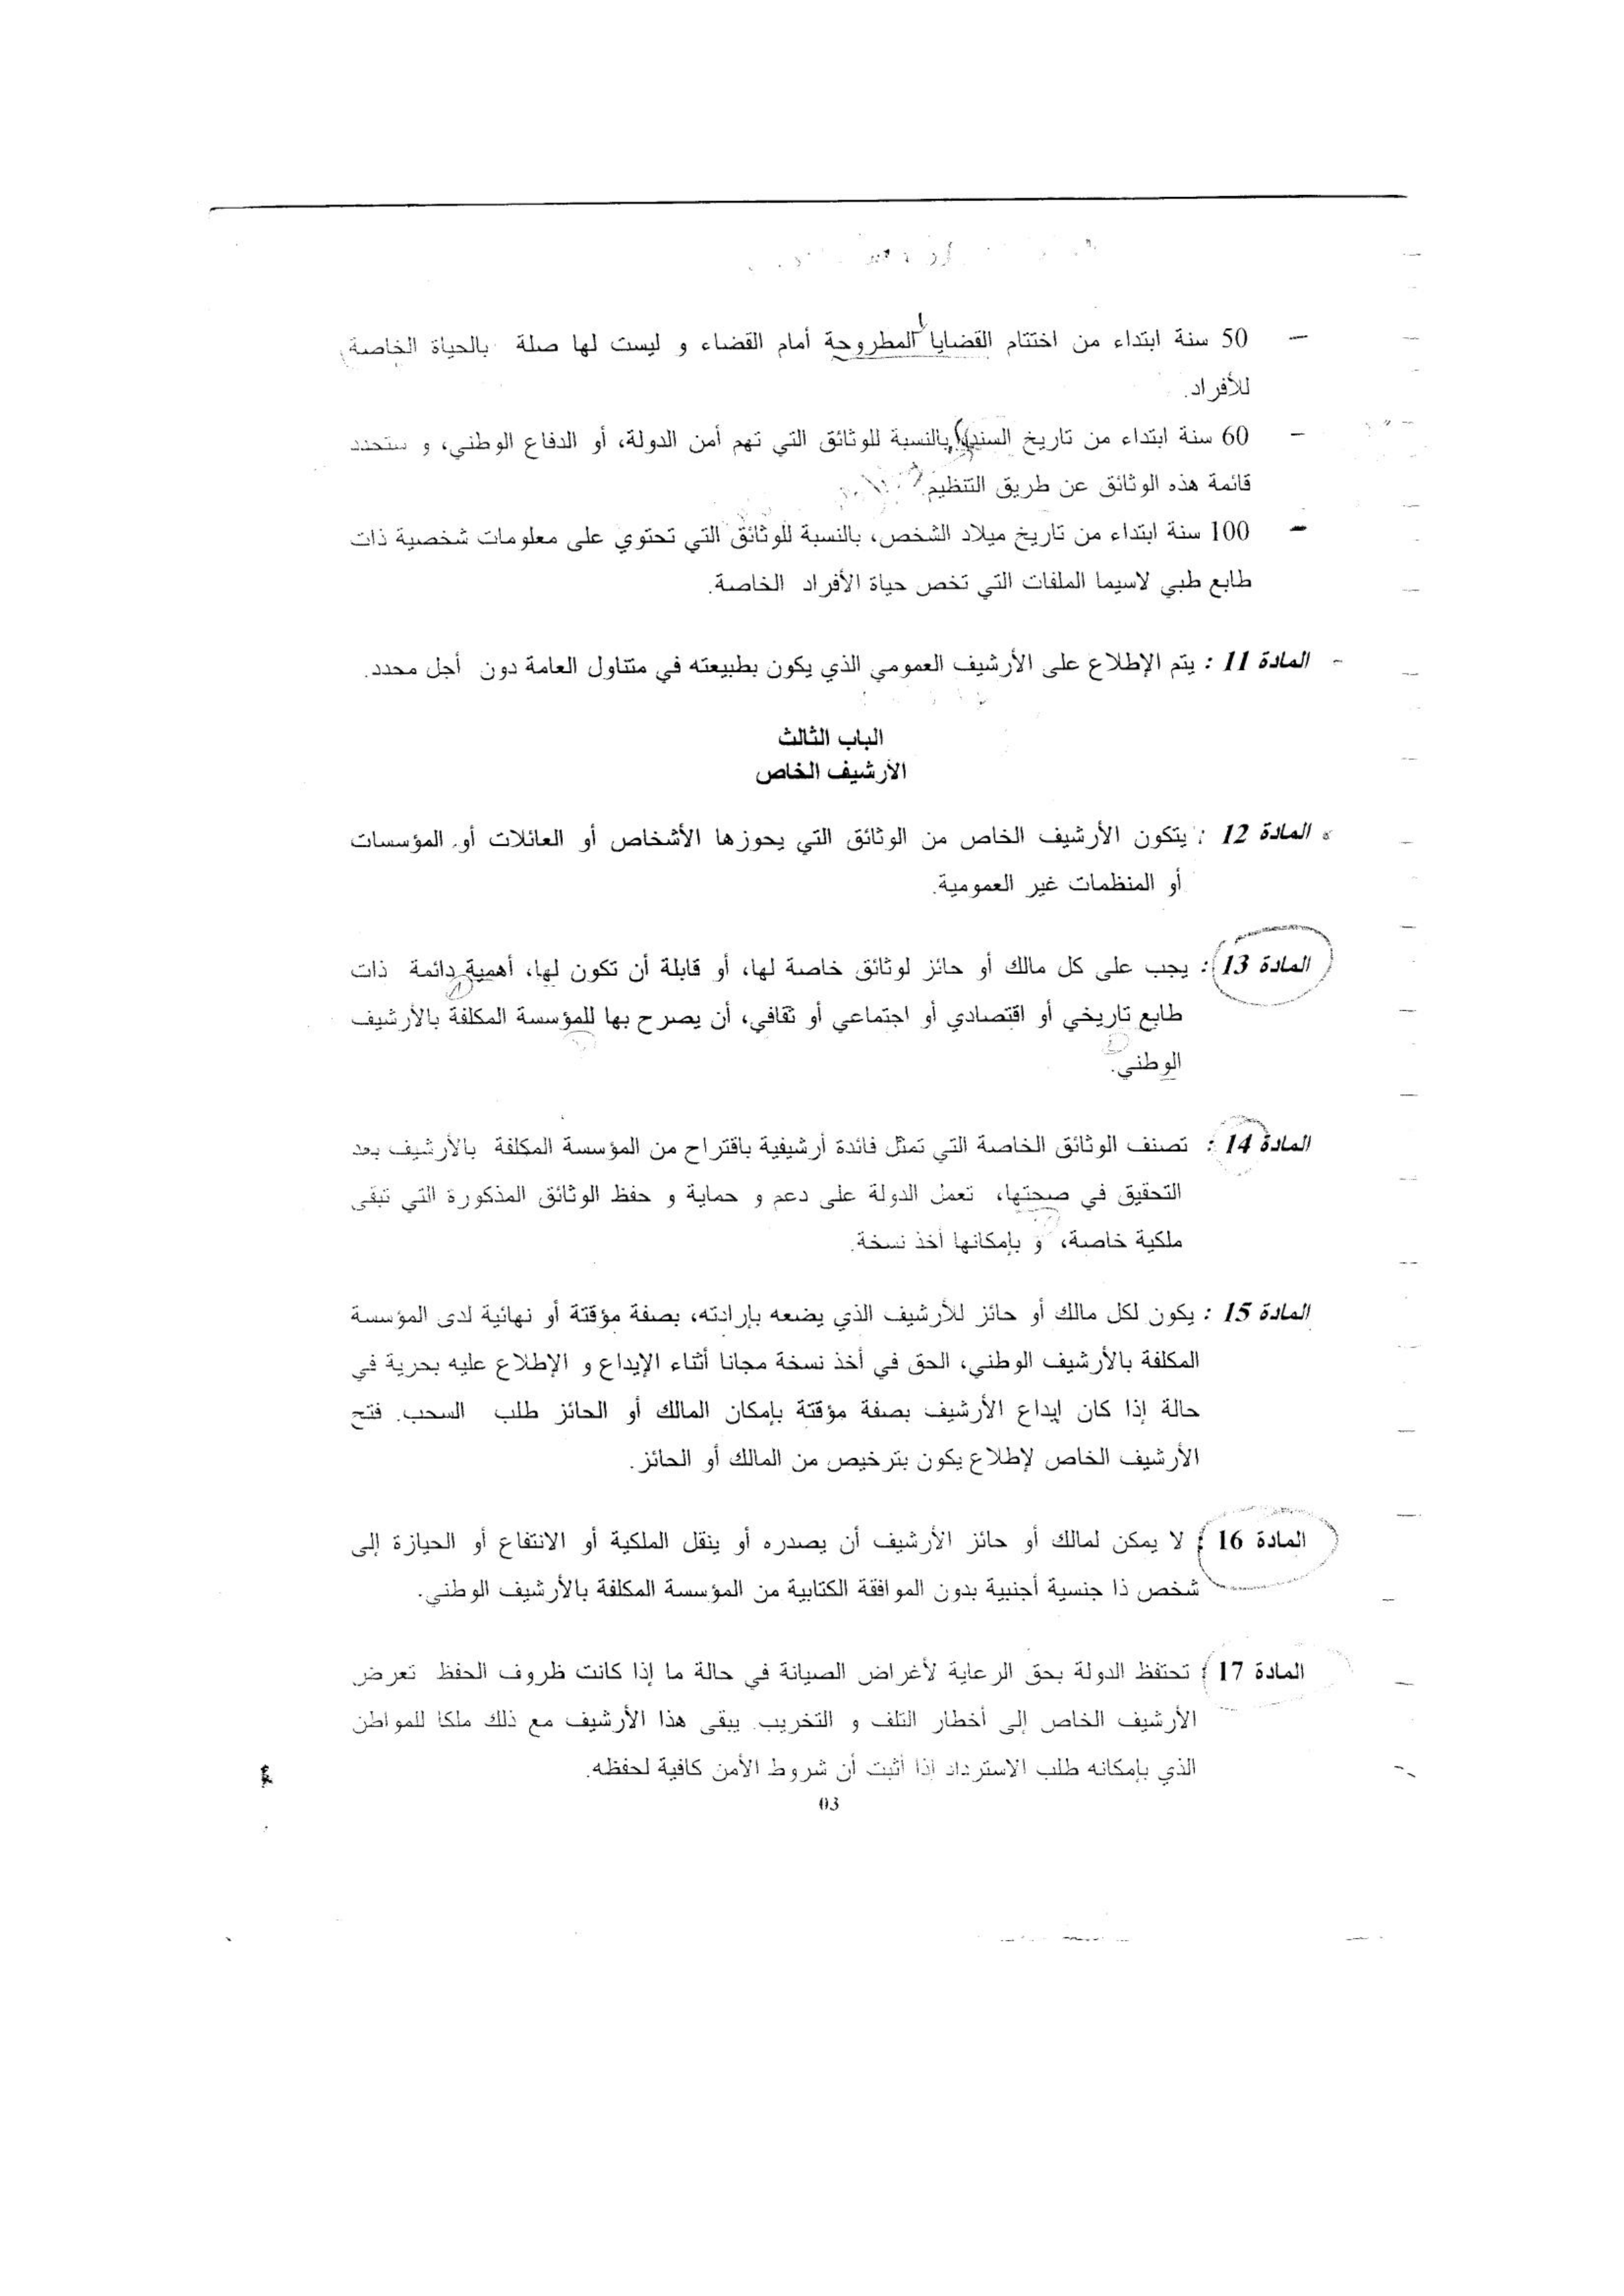 – 50 سنة ابتداء من اختتام القضايا المطروحة أمام القضاء و ليست لها صلة بالحياة الخاصة
للأفراد.
– 60 سنة ابتداء من تاريخ السند، بالنسبة للوثائق التي تهم أمن الدولة، أو الدفاع الوطني، و ستحدد
قائمة هذه الوثائق عن طريق التنظيم.
– 100 سنة ابتداء من تاريخ ميلاد الشخص، بالنسبة للوثائق التي تحتوي على معلومات شخصية ذات
طابع طبي لاسيما الملفات التي تخص حياة الأفراد الخاصة.
المادة 11 : يتم الإطلاع على الأرشيف العمومي الذي يكون بطبيعته في متناول العامة دون أجل محدد.
الباب الثالث
الأرشيف الخاص
المادة 12 : يتكون الأرشيف الخاص من الوثائق التي يحوزها الأشخاص أو العائلات أو المؤسسات
أو المنظمات غير العمومية.
المادة 13 : يجب على كل مالك أو حائز لوثائق خاصة لها، أو قابلة أن تكون لها، أهمية دائمة ذات
طابع تاريخي أو اقتصادي أو اجتماعي أو ثقافي، أن يصرح بها للمؤسسة المكلفة بالأرشيف
الوطني.
المادة 14 : تصنف الوثائق الخاصة التي تمثل فائدة أرشيفية باقتراح من المؤسسة المكلفة بالأرشيف بعد
التحقيق في صحتها، تعمل الدولة على دعم و حماية و حفظ الوثائق المذكورة التي تبقى
ملكية خاصة، و بإمكانها أخذ نسخة.
المادة 15 : يكون لكل مالك أو حائز للأرشيف الذي يضعه بإرادته، بصفة مؤقتة أو نهائية لدى المؤسسة
المكلفة بالأرشيف الوطني، الحق في أخذ نسخة مجانا أثناء الإيداع و الإطلاع عليه بحرية في
حالة إذا كان إيداع الأرشيف بصفة مؤقتة بإمكان المالك أو الحائز طلب السحب. فتح
الأرشيف الخاص لإطلاع يكون بترخيص من المالك أو الحائز.
المادة 16 : لا يمكن لمالك أو حائز الأرشيف أن يصدره أو ينقل الملكية أو الانتفاع أو الحيازة إلى
شخص ذا جنسية أجنبية بدون الموافقة الكتابية من المؤسسة المكلفة بالأرشيف الوطني.
المادة 17 : تحتفظ الدولة بحق الرعاية لأغراض الصيانة في حالة ما إذا كانت ظروف الحفظ تعرض
الأرشيف الخاص إلى أخطار التلف و التخريب. يبقى هذا الأرشيف مع ذلك ملكا للمواطن
الذي بإمكانه طلب الاسترداد إذا أثبت أن شروط الأمن كافية لحفظه.
03